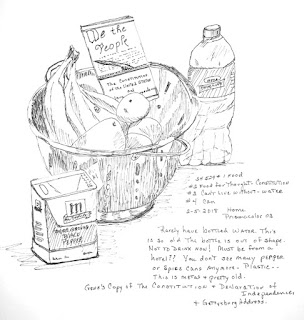 We the
People
The Constitution
of the United States
m
BLACK
PEPPER
#1 Food
#2 Food for Thought - CONSTITUTION
#3 Can't live without - WATER
#4 Can
2-5-2015 Home
Rarely have bottled water. This
is so old the bottle is out of shape.
Not to drink now! Must be from a
hotel?? You don't see many pepper
or spice cans anymore - Plastic --
This is metal & pretty old.
Gene's Copy of the Constitution & Declaration of
Independence
& Gettysburg Address.